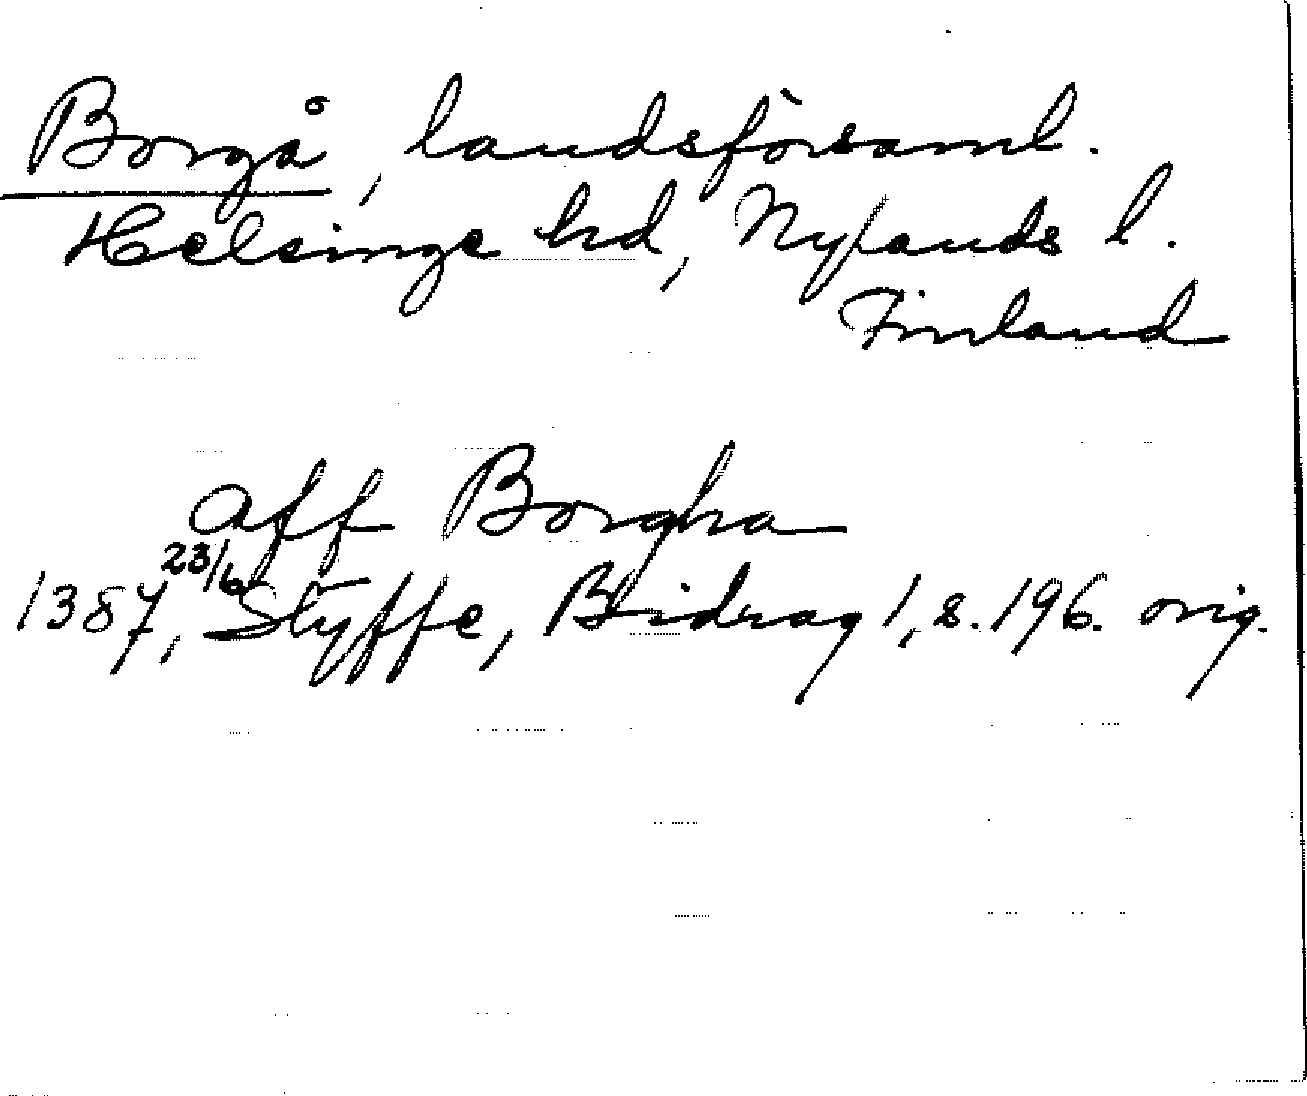 Borgå, landsförsaml.
Helsinge hd, Nylands l.
Finland
aff Borgha
1387 23/6, Styffe, Bidrag 1, s. 196. orig.